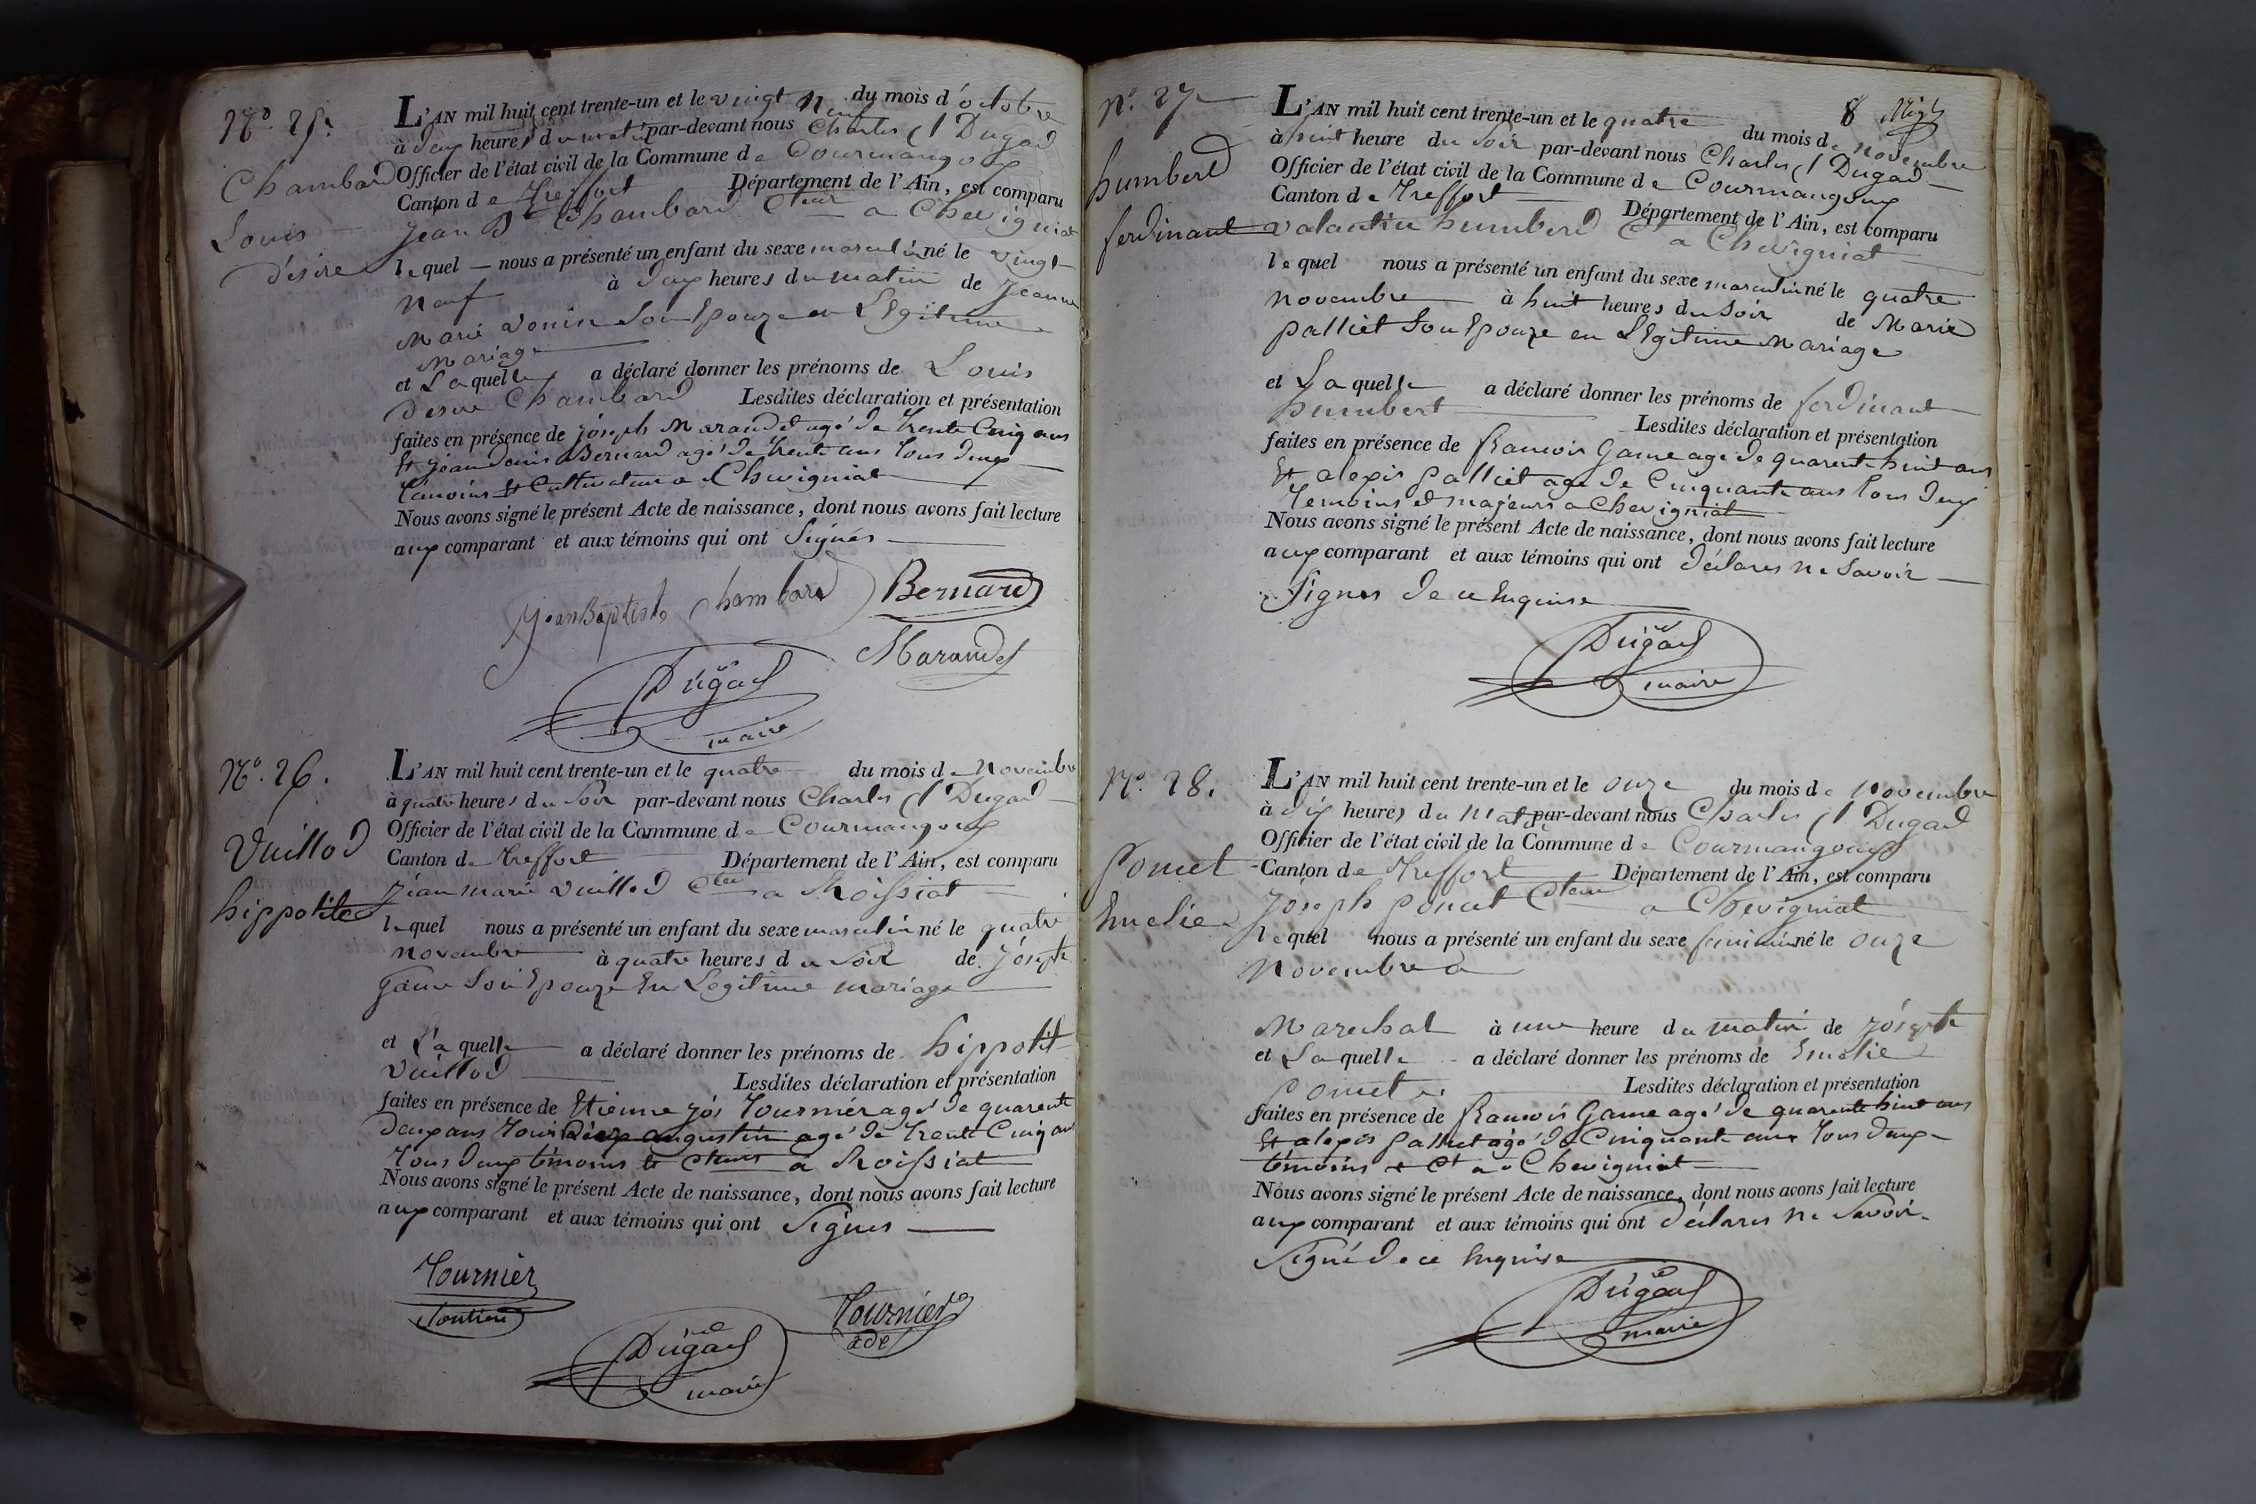 N.o 25.
Chambard
Louis
désiré
L'AN mil huit cent trente-un et le vingt neuf du mois d'octobre
à deux heures du matin par-devant nous Charles Dugad
Officier de l'état civil de la Commune de Courmangoux
Canton de Treffort Département de l'Ain, est comparu
jean Bte Chambard Cteur a Chevigniat
lequel nous a présenté un enfant du sexe masculin né le vingt
neuf à deux heures du matin de jeanne
Marie vonin son Epouze en Legitime
Mariage
et Laquelle a déclaré donner les prénoms de Louis
desire Chambard Lesdites déclaration et présentation
faites en présence de joseph Marandet agé de trente Cinq ans
Et jean denis Bernard agé de trente ans tous deux
témoins Et Cultivateur a Chevigniat
Nous avons signé le présent Acte de naissance, dont nous avons fait lecture
aux comparant et aux témoins qui ont Signés
jean Baptiste Chambard Bernard
Marandet
Dugad
maire
N.o 26.
Vuillod
hippolite
L'AN mil huit cent trente-un et le quatre du mois de Novembre
à quatre heures du Soir par-devant nous Charles Dugad
Officier de l'état civil de la Commune de Courmangoux
Canton de Treffort Département de l'Ain, est comparu
jean marie vuillod Cteur a Roissiat
lequel nous a présenté un enfant du sexe masculin né le quatre
novembre à quatre heures du Soir de josephte
game Son Epouze En Legitime mariage
et Laquelle a déclaré donner les prénoms de hippolit
Vuillod Lesdites déclaration et présentation
faites en présence de Etienne jos Tournier agé de quarente
deux ans augustin agé de trente Cinq ans
tous deux témoins et Cteurs a Roissiat
Nous avons signé le présent Acte de naissance, dont nous avons fait lecture
aux comparant et aux témoins qui ont Signés
Tournier
Tournier
ade
Dugad
maire
8
N.o 27
humberd
ferdinant
L'AN mil huit cent trente-un et le quatre du mois de novembre
à huit heure du Soir par-devant nous Charles Dugad
Officier de l'état civil de la Commune de Courmangoux
Canton de Treffort Département de l'Ain, est comparu
valantin humberd C a Chevigniat
lequel nous a présenté un enfant du sexe masculin né le quatre
novembre à huit heures du Soir de Marie
palliet Son Epouze en LEgitime Mariage
et Laquelle a déclaré donner les prénoms de ferdinant
humbert Lesdites déclaration et présentation
faites en présence de francois Game agé de quarente huit ans
Et alexis palliet agé de Cinquante ans tous deux
temoins et majeurs a Chevigniat
Nous avons signé le présent Acte de naissance, dont nous avons fait lecture
aux comparant et aux témoins qui ont déclares ne Savoir
Signer de ce Enquise
Dugad
maire
N.o 28.
poncet
Emelie
L'AN mil huit cent trente-un et le onze du mois de Novembre
à dix heures du Matin par-devant nous Charles Dugad
Officier de l'état civil de la Commune de Courmangoux
Canton de Treffort Département de l'Ain, est comparu
joseph poncet Cteur a Chevigniat
lequel nous a présenté un enfant du sexe feminin né le onze
Novembre a
Marechal à une heure du matin de josephte
et Laquelle a déclaré donner les prénoms de Emelie
poncet Lesdites déclaration et présentation
faites en présence de francois Game agé de quarente huit ans
Et alexis palliet agé de Cinquante ans tous deux
témoins et Ct a Chevigniat
Nous avons signé le présent Acte de naissance, dont nous avons fait lecture
aux comparant et aux témoins qui ont déclares ne Savoir
Signé de ce Enquise
Dugad
maire